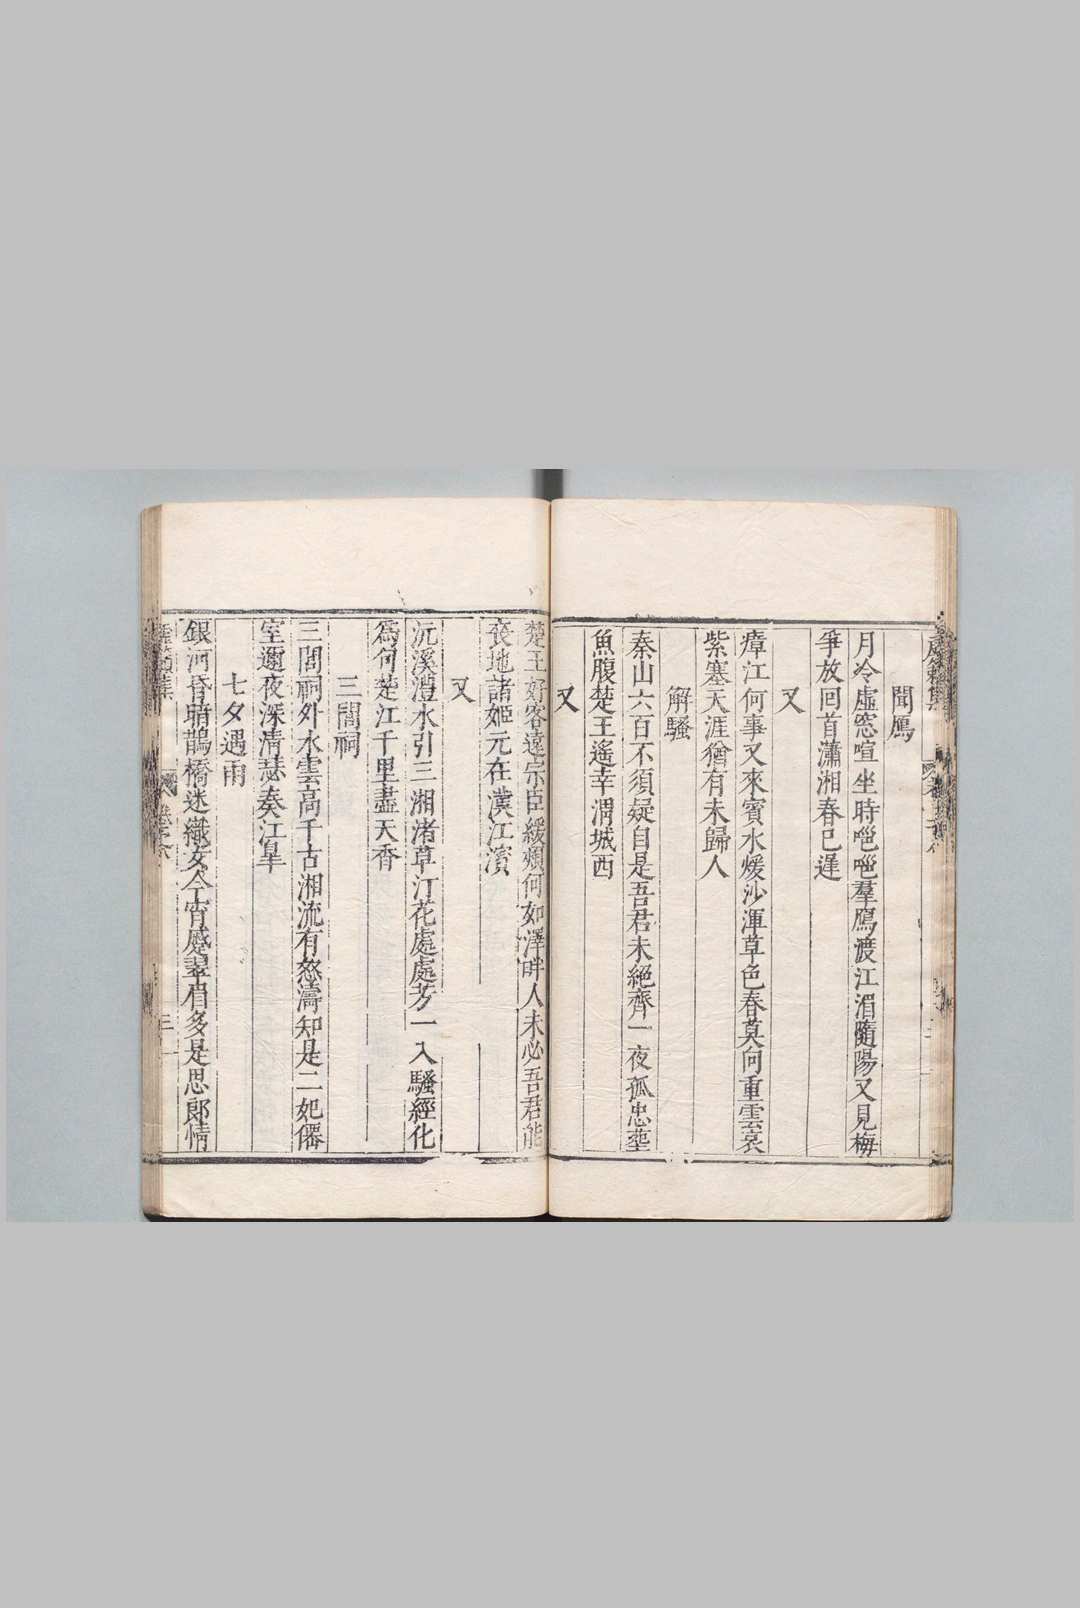 聞鴈
月冷虛窓喧坐時嗈嗈羣鴈渡江湄隨陽又見梅
爭放回首瀟湘春已遲
又
瘴江何事又來賓水煖沙渾草色春莫向重雲哀
紫塞天涯猶有未歸人
解騷
秦山六百不須疑自是吾君未絕齊一夜孤忠塟
魚腹楚王遙幸渭城西
又
楚王好客遠宗臣緩頰何如澤畔人未必吾君能
喪地諸姬元在漢江濱
又
沅溪澧水引三湘渚草汀花處處芳一入騷經化
爲何楚江千里盡天香
三閭祠
三閭祠外水雲高千古湘流有怒濤知是二妃儕
室邇夜深清瑟奏江皐
七夕遇雨
銀河昏暗鵲橋迷織女今宵蹙翠眉多是思郎情